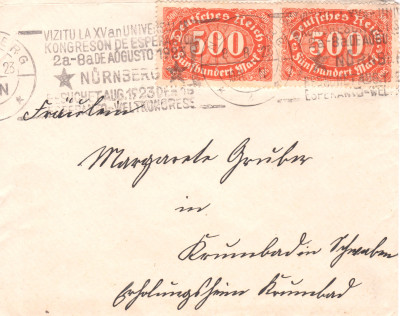 VIZITU LA XVan UNIVER
KONGRESON DE ESPE
2a-8a DE AUGUSTO 192
NÜRNBERG
BESUCHET AUG. 1923 DEN 15
ESPERANTO-WELTKONGRESS
RG
23
N
Deutsches Reich
500
Fünfhundert Mark
Deutsches Reich
500
Fünfhundert Mark
NÜ
ESPERANTO-WELT
Fräulein
Margarete Gruber
in
Krumbad in Schwaben
Erholungsheim Krumbad